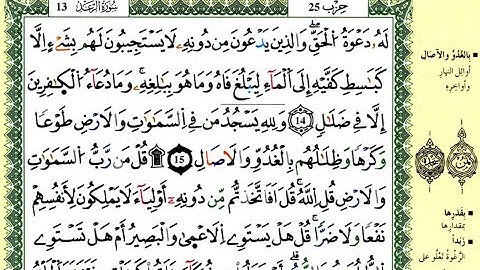 13 سُورَةُ الرَّعْدِ
حِزْب 25
لَهُۥ دَعْوَةُ الْحَقِّ وَالَّذِينَ يَدْعُونَ مِن دُونِهِۦ لَا يَسْتَجِيبُونَ لَهُم بِشَىْءٍ اِلَّا
كَبَاسِطِ كَفَّيْهِ إِلَى الْمَآءِ لِيَبْلُغَ فَاهُ وَمَا هُوَ بِبَٰلِغِهِۦ وَمَا دُعَآءُ الْكٰفِرِينَ
إِلَّا فِى ضَلَٰلٍ 14 وَلِلهِ يَسْجُدُ مَن فِى السَّمَٰوَٰتِ وَالَارْضِ طَوْعًا
وَكَرْهًا وَظِلَٰلُهُم بِالْغُدُوِّ وَالَاصَالِ ۩ 15 قُلْ مَن رَّبُّ السَّمَٰوَٰتِ
وَالَارْضِ قُلِ اللَّهُ قُلَ اَفَاتَّخَذتُّم مِّن دُونِهِۦٓ أَوْلِيَآءَ لَا يَمْلِكُونَ لِأَنفُسِهِمْ
نَفْعًا وَلَا ضَرًّا قُلْ هَلْ يَسْتَوِى الَاعْمَىٰ وَالْبَصِيرُ أَمْ هَلْ تَسْتَوِى
بِالْغُدُوِّ وَالآصَالِ
أوائل النهار
وأواخره
بِقَدَرِهَا
بمقدارها
زَبَدًا
الرغوة تعلو على